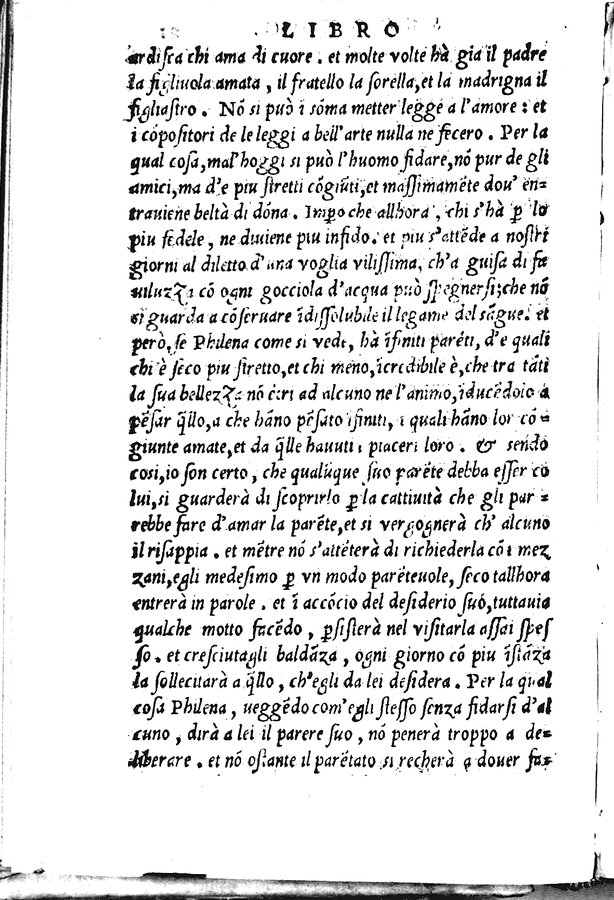 LIBRO
ardisca chi ama di cuore . et molte volte hà gia il padre
la figliuola amata , il fratello la sorella, et la madrigna il
figliastro . Nõ si può ĩ sõma metter legge a l'amore : et
i cõpositori de le leggi a bell'arte nulla ne fecero . Per la
qual cosa, mal'hoggi si può l'huomo fidare, nõ pur de gli
amici, ma d'e piu stretti cõgiũti, et massimamẽte dou' en=
traviene beltà di dõna . Impo che allhora , chi s'hà p lo
piu fedele , ne diviene piu infido . et piu s'attẽde a nostri
giorni al diletto d'una voglia vilissima, ch'a guisa di fa
uiluzza cõ ogni gocciola d'acqua può spegnersi; che nõ
si guarda a cõseruare ĩdissolubile il legame del sãgue. et
però, se Philena come si vede, hà ĩfiniti parẽti, d'e quali
chi è seco piu stretto, et chi meno, ĩcredibile è, che tra tãti
la sua bellezza nõ ẽtri ad alcuno ne l'animo, ĩducẽdolo a
pẽsar qllo, a che hãno pẽsato ĩfiniti, i quali hãno lor cõ =
giunte amate, et da qlle hauuti i piaceri loro . & sendo
cosi, io son certo , che qualũque suo parẽte debba esser co
lui, si guarderà di scoprirlo p la cattiuità che gli par =
rebbe fare d'amar la parẽte, et si vergognerà ch' alcuno
il risappia . et mẽtre nõ s'attẽterà di richiederla cõ i mez
zani, egli medesimo p vn modo parẽteuole, seco tallhora
entrerà in parole . et ĩ accõcio del desiderio suò, tuttauia
qualche motto facẽdo , psisterà nel visitarla assai spes
so . et cresciutagli baldãza , ogni giorno cõ piu ĩstãza
la sollecitarà a qllo , ch'egli da lei desidera . Per la qual
cosa Philena , ueggẽdo com'egli stesso senza fidarsi d'al
cuno , dirà a lei il parere suo , nõ penerà troppo a de=
liberare . et nõ ostante il parẽtato si recherà a douer fa=